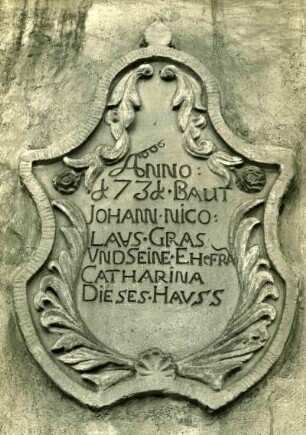 ANNO:
1731·BAUT
JOHANN·NICO:
LAUS·GRAS
UND SEINE·EHEFRA
CATHARINA
DIESES·HAUSS